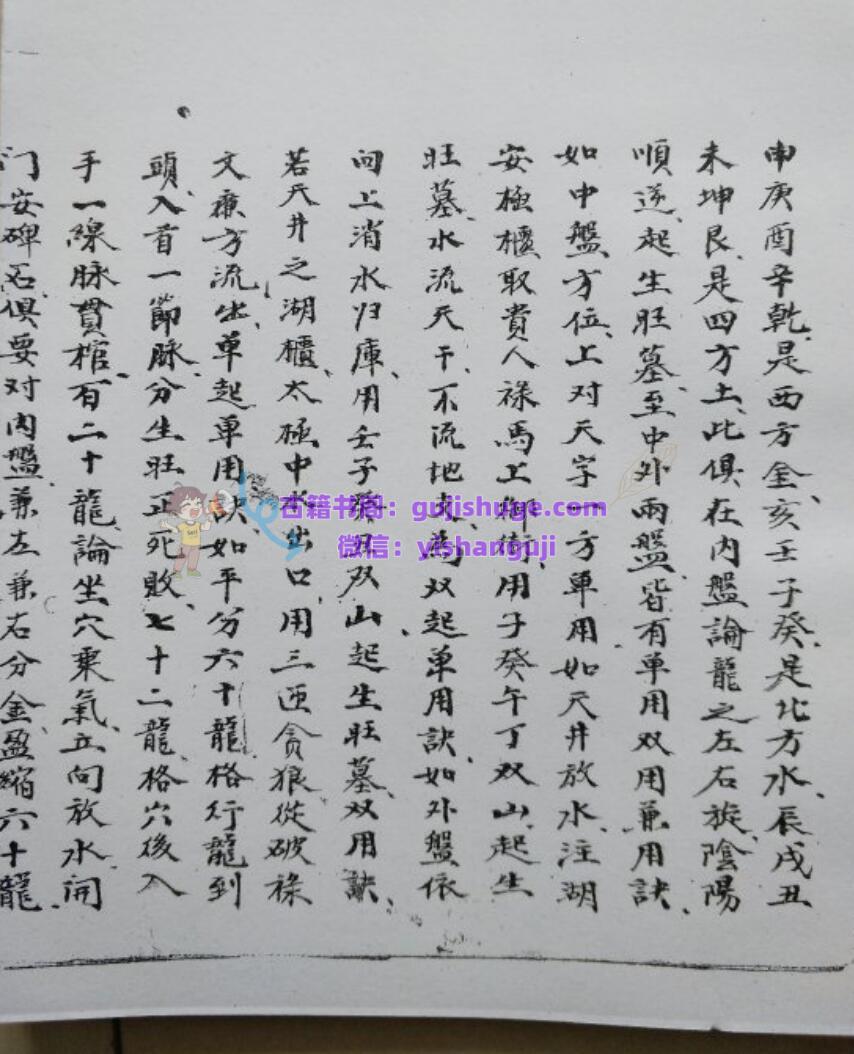 申庚酉辛乾、是西方金、亥壬子癸、是北方水、辰戌丑
未坤艮、是四方土、此俱在内盤論龍之左右旋、陰陽
順逆、起生旺墓、至中外兩盤、皆有单用双用兼用訣、
如中盤方位、上对天字一方单用、如天井放水、注湖
安極櫃取貴人禄馬上御街、用子癸午丁双山、起生
旺墓、水流天干、不流地支、為双起单用訣、如外盤依
向上消水归庫、用壬子双山、起生旺墓、双用訣、
若天井之湖櫃、太極中水出口、用三匝贪狼從破禄
文廉方流出、单起单用訣、如平分六十龍、格行龍到
頭、入首一節脉、分生旺正死敗、七十二龍、格穴後入
手一線脉貫棺、百二十龍、論坐穴乘氣、立向放水、開
门安碑石、俱要对内盤、兼左兼右分金、盈縮六十龍、
古籍书阁：gujishuge.com
微信：yishanguji